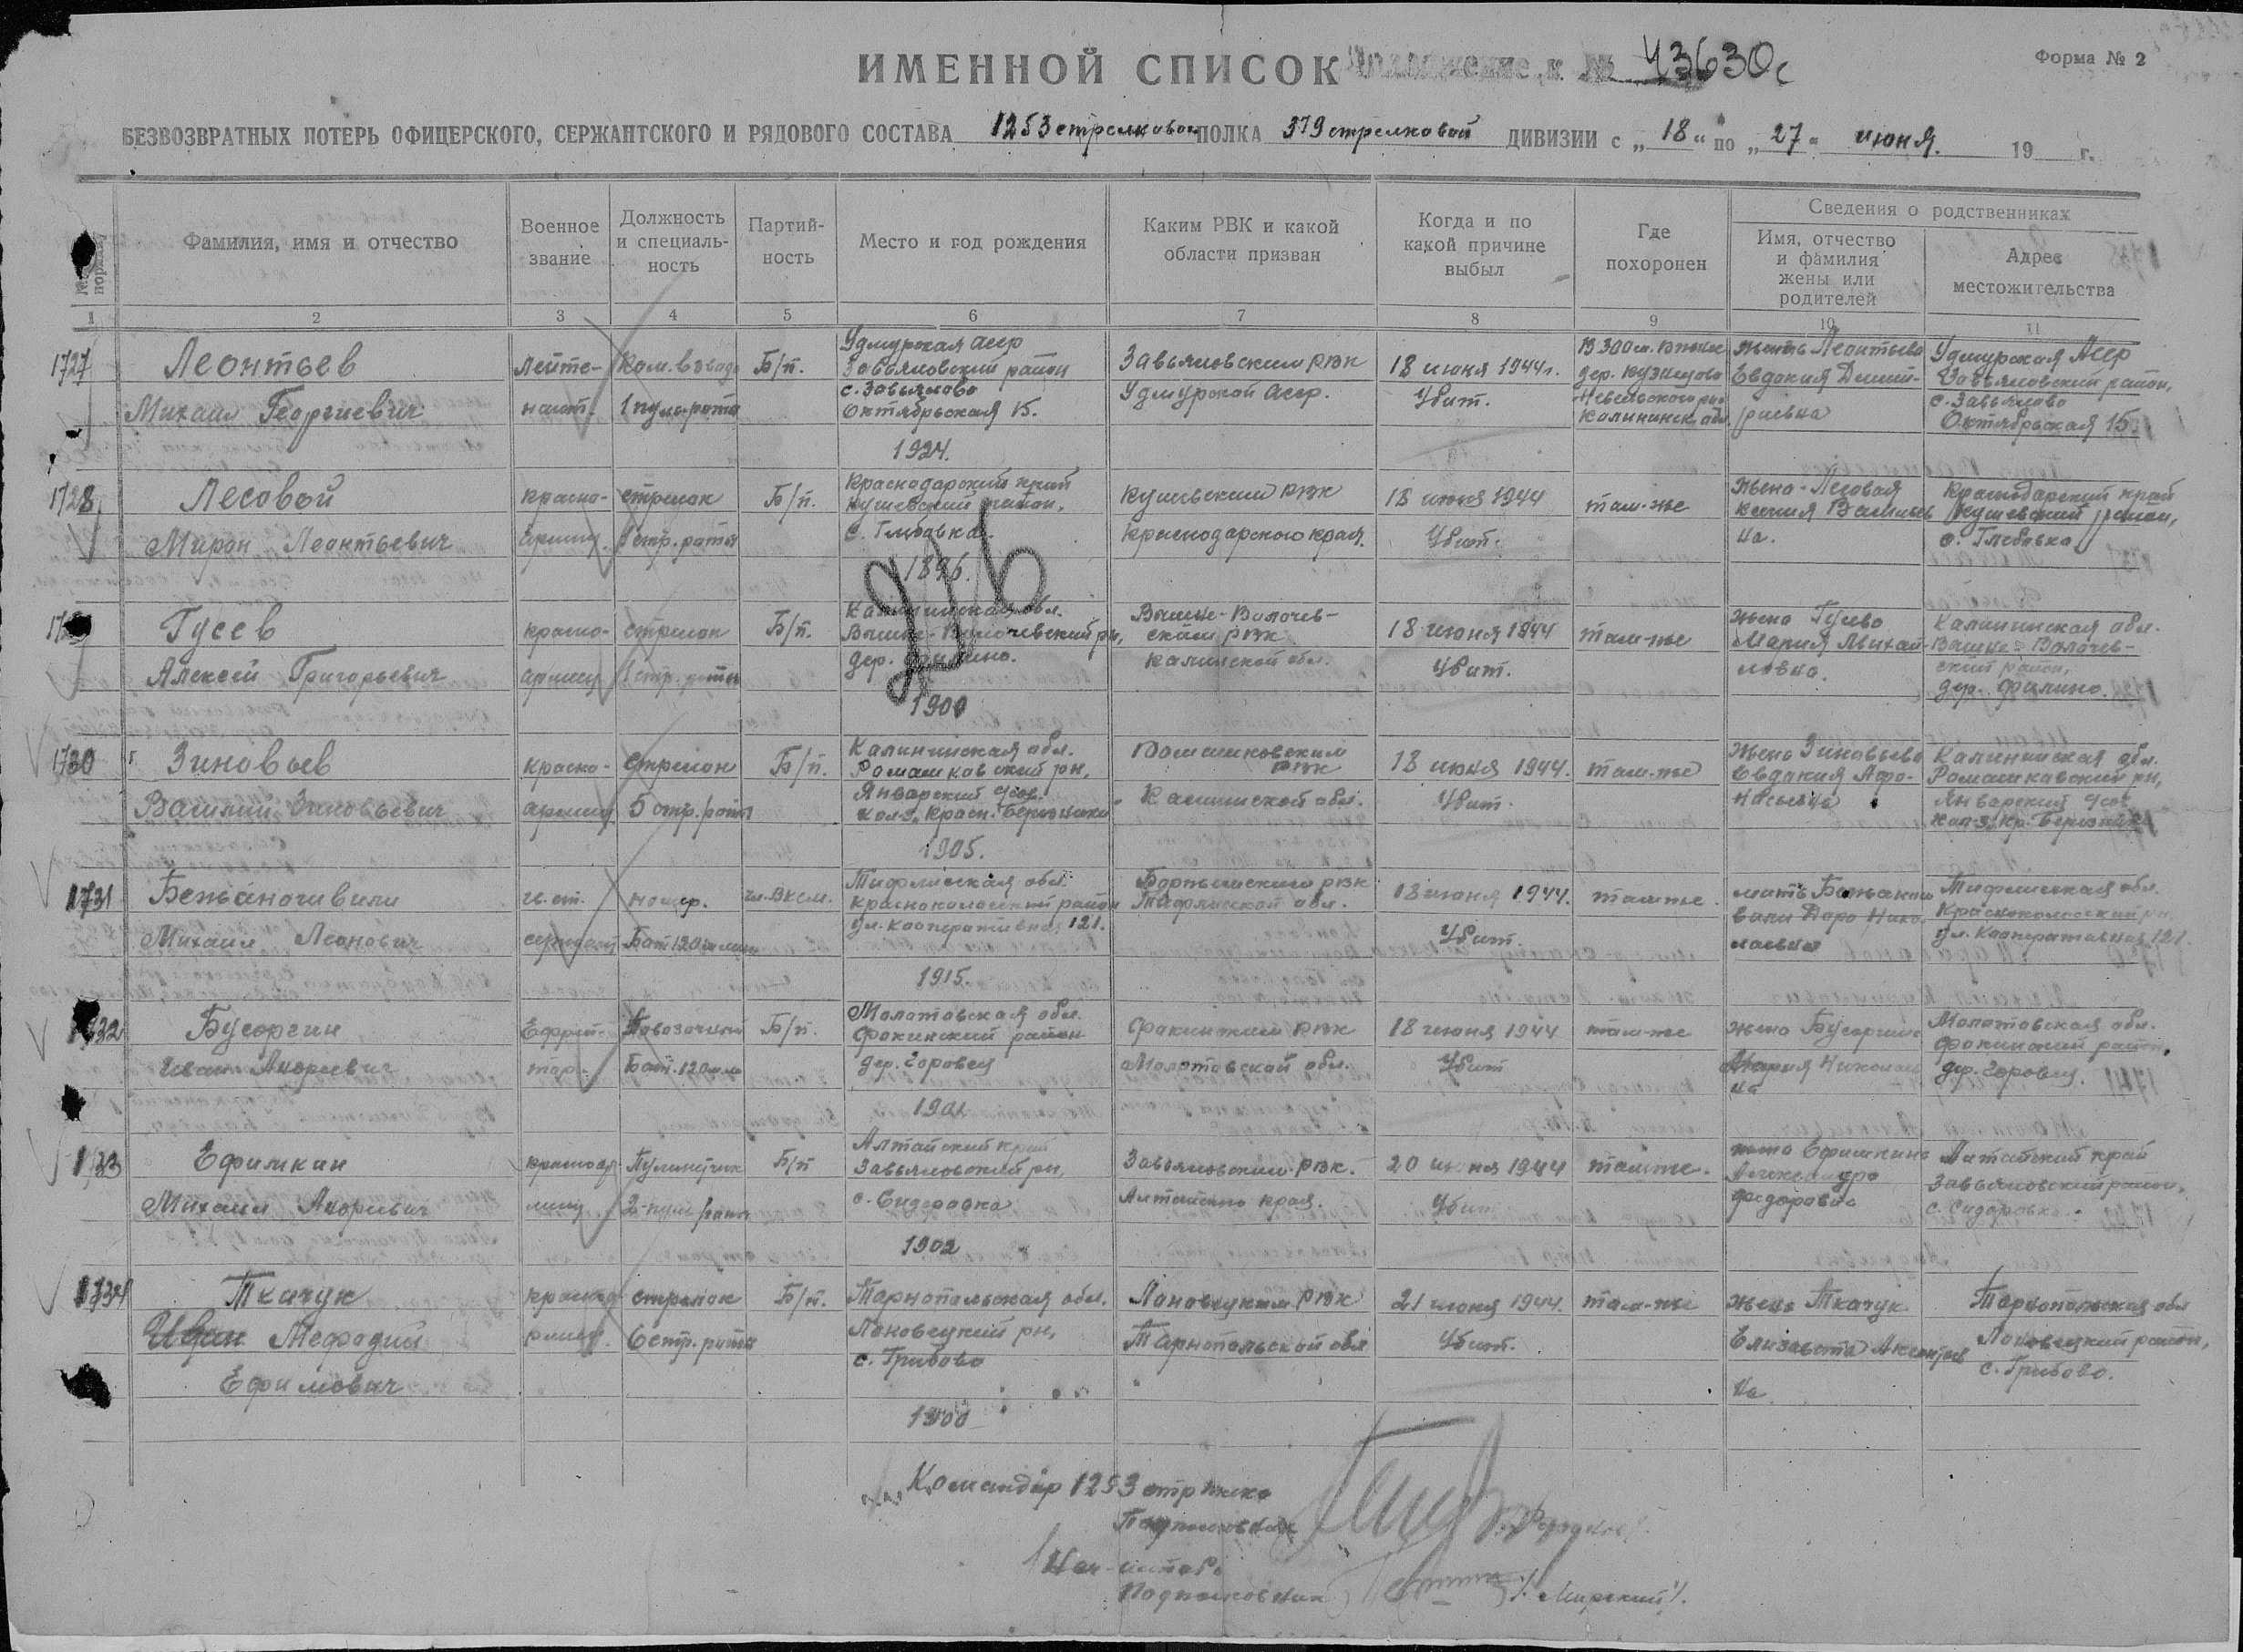 ИМЕННОЙ СПИСОК к № 43630с
Форма № 2
БЕЗВОЗВРАТНЫХ ПОТЕРЬ ОФИЦЕРСКОГО, СЕРЖАНТСКОГО И РЯДОВОГО СОСТАВА 1253 стрелковой ПОЛКА 379 стрелковой ДИВИЗИИ с „ 18 “ по „ 27 “ июня. 19 г.
порядку
Фамилия, имя и отчество
Военное звание
Должность и специаль-ность
Партий-ность
Место и год рождения
Каким РВК и какой области призван
Когда и по какой причине выбыл
Где похоронен
Сведения о родственниках
Имя, отчество и фамилия жены или родителей
Адрес местожительства
1 2 3 4 5 6 7 8 9 10 11
1727
Леонтьев
Михаил Георгиевич
лейте-
нант.
Ком. взвода
1 пул. рота
Б/п.
Удмурская асср
Завьяловский район
с. Завьялово
Октябрьская 15.
1924.
Завьяловским рвк
Удмурской асср.
18 июня 1944г.
Убит.
В 300 м.
дер. Кузнецово
Невельского р-на
Калининск. обл.
Леонтьева
Евдокия Дмит-
риевна
Удмурская Асср
Завьяловский район,
с. Завьялово
Октябрьская 15.
1728
Лесовой
Мирон Леонтьевич
красно-
армеец
стрелок
1 стр. роты
Б/п.
Краснодарский край
Кущевский район,
с. Глебовка.
1896.
Кущевским рвк
Краснодарского края.
18 июня 1944
Убит.
там-же
жена-Лесовая
Ксения Васильев
на.
Краснодарский край
Кущевский район,
с. Глебовка
Гусев
Алексей Григорьевич
красно-
армеец
стрелок
1 стр. роты
Б/п.
Калининская обл.
Вышне-Волочевский рн,
дер. Филино.
1900
Вышне-Волочев-
ским рвк
Калинской обл.
18 июня 1944
Убит.
там-же
жена Гусева
Мария Михай-
ловна.
Калининская обл.
Вышне-Волочев-
ский район,
дер. Филино.
1730
Зиновьев
Василий Зиновьевич
красно-
армеец
стрелок
5 стр. роты
Б/п.
Калининская обл.
Ромашковский рн,
Январский
кол-з, Красн. Березники
1905.
Ромашковским
рвк
Калининской обл.
18 июня 1944.
Убит.
там-же
жена Зиновьева
Евдокия Афа-
насьевна
Калининская обл.
Ромашковский рн,
Январский
кол-з, Кр. Березники
1731
Бежаночивили
Михаил Леонович
ст.
сержант
Бат 120 мм мин
чл. ВКСМ.
Тифлисская обл.
Красноколосский район
ул. Кооперативная 121.
1915.
рвк
Тифлисской обл.
18 июня 1944.
Убит.
там же.
мать
Дара Нико-
лаевна
Тифлисская обл.
Красноколосский рн
ул. Кооперативная 121.
1732
Бусоргин
Иван Андреевич
Ефрей-
тор.
Повозочный
Бат. 120 мм
Б/п.
Молотовская обл.
Фокинский район
дер. Горовец
1901
Фокинским рвк
Молотовской обл.
18 июня 1944
Убит
там-же
жена Бусоргина
Мария Николаев
на
Молотовская обл.
Фокинский район,
дер. Горовец.
1733
Ефимкин
Михаил Андреевич
красноар-
меец
Пулеметчик
2 пул роты
Б/п
Алтайский край
Завьяловский рн,
с. Сидоровка
1902
Завьяловским рвк.
Алтайского края.
20 июня 1944
Убит
там же.
жена Ефимкина
Александра
Федоровна
Алтайский край
Завьяловский район,
с. Сидоровка.
1734
Ткачук
Иван Мефадий
Ефимович
красноа
рмеец.
стрелок
6 стр. роты
Б/п.
Тарнопольская обл.
Лановецкий рн,
с. Грибово
1900
Лановецким рвк
Тарнопольской обл
21 июня 1944.
Убит.
там-же
жена Ткачук
Елизавета Аксентьев
на
Тарнопольская обл
Лановецкий район,
с. Грибово.
Командир 1253 стр полка
Подполковник
Нач-штаба
Подполковник /Мирский/.